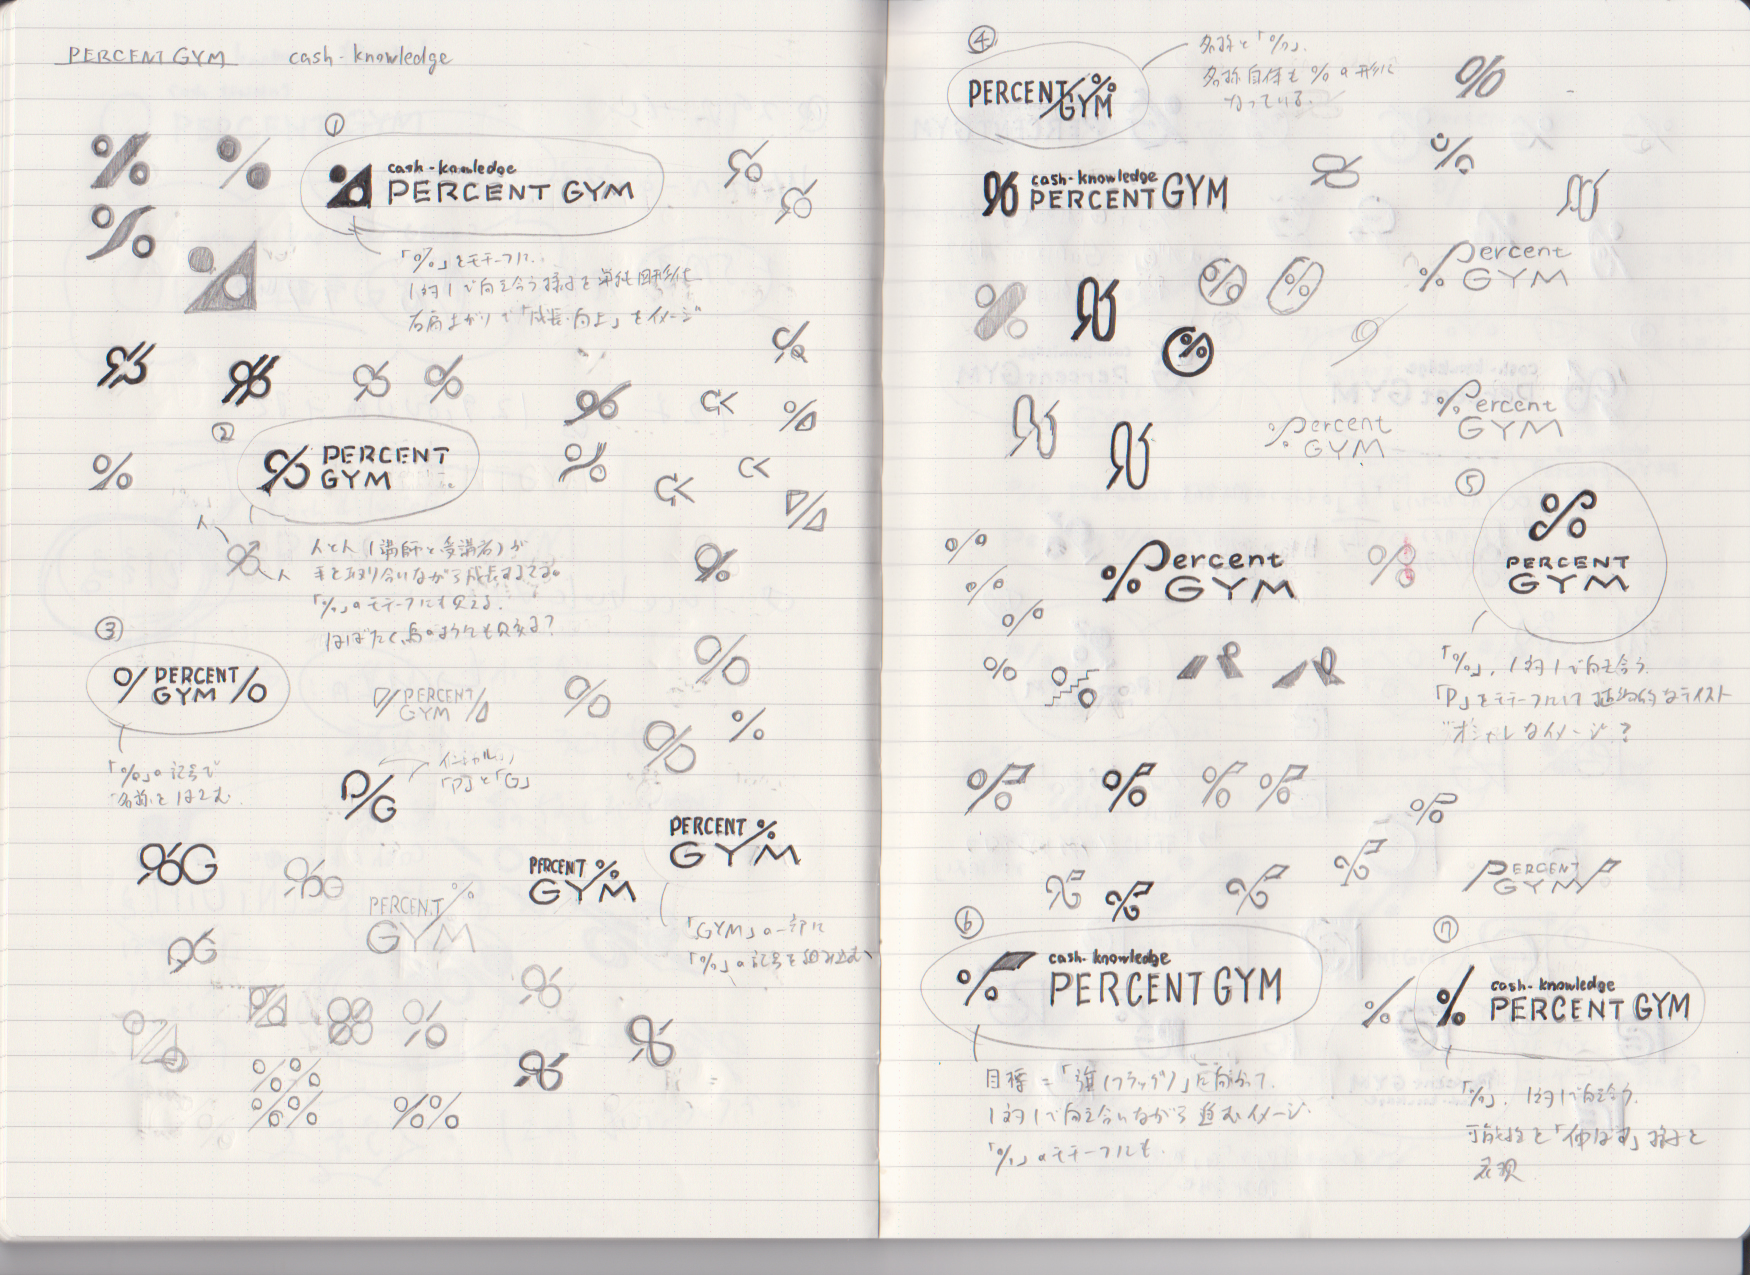 PERCENT GYM cash-knowledge
①
cash-knowledge
PERCENT GYM
「%」をモチーフに.
1対1で向き合う様子を単純図形化
右肩上がりで「成長・向上」をイメージ
②
PERCENT
GYM
人
人
人と人(講師と受講者)が
手を取り合いながら成長する
「%」のモチーフにも見える.
はばたく鳥のようにも見える?
③
PERCENT
GYM
「%」の記号で
名称をはさむ.
PERCENT
GYM
P/G
イニシャル
「P」と「G」
%G
PERCENT %
GYM
PERCENT %
GYM
PERCENT %
GYM
「GYM」の一部に
「%」の記号を組み込む
④
PERCENT %
GYM
名称と「%」.
名称自体も%の形に
なっている.
cash-knowledge
PERCENT GYM
Percent
GYM
Percent
GYM
Percent
GYM
Percent
GYM
⑤
PERCENT
GYM
「%」, 1対1で向き合う.
「P」をモチーフにして
オシャレなイメージ?
PERCENT
GYM
⑥
cash-knowledge
PERCENT GYM
目標=「旗(フラッグ)」に向かって.
1対1で向き合いながら進むイメージ.
「%」のモチーフにも.
⑦
cash-knowledge
PERCENT GYM
「%」, 1対1で向き合う.
可能性を「伸ばす」様子を
表現